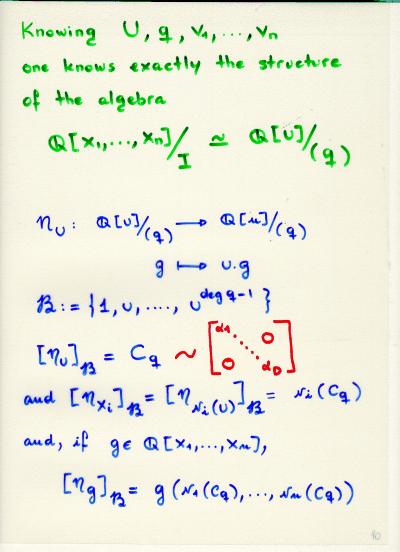 Knowing U, q, v₁,...,vₙ
one knows exactly the structure
of the algebra
Q[x₁,...,xₙ]/I ≃ Q[U]/(q)
η_U: Q[U]/(q) → Q[u]/(q)
g ↦ U.g
B := {1, U, ...., U^{deg q-1}}
[η_U]_B = C_q ~ [α₁ 0 0 α_D]
and [η_{x_i}]_B = [η_{v_i(U)}]_B = v_i(C_q)
and, if g ∈ Q[x₁,...,xₙ],
[η_g]_B = g(v₁(C_q),...,vₙ(C_q))
10